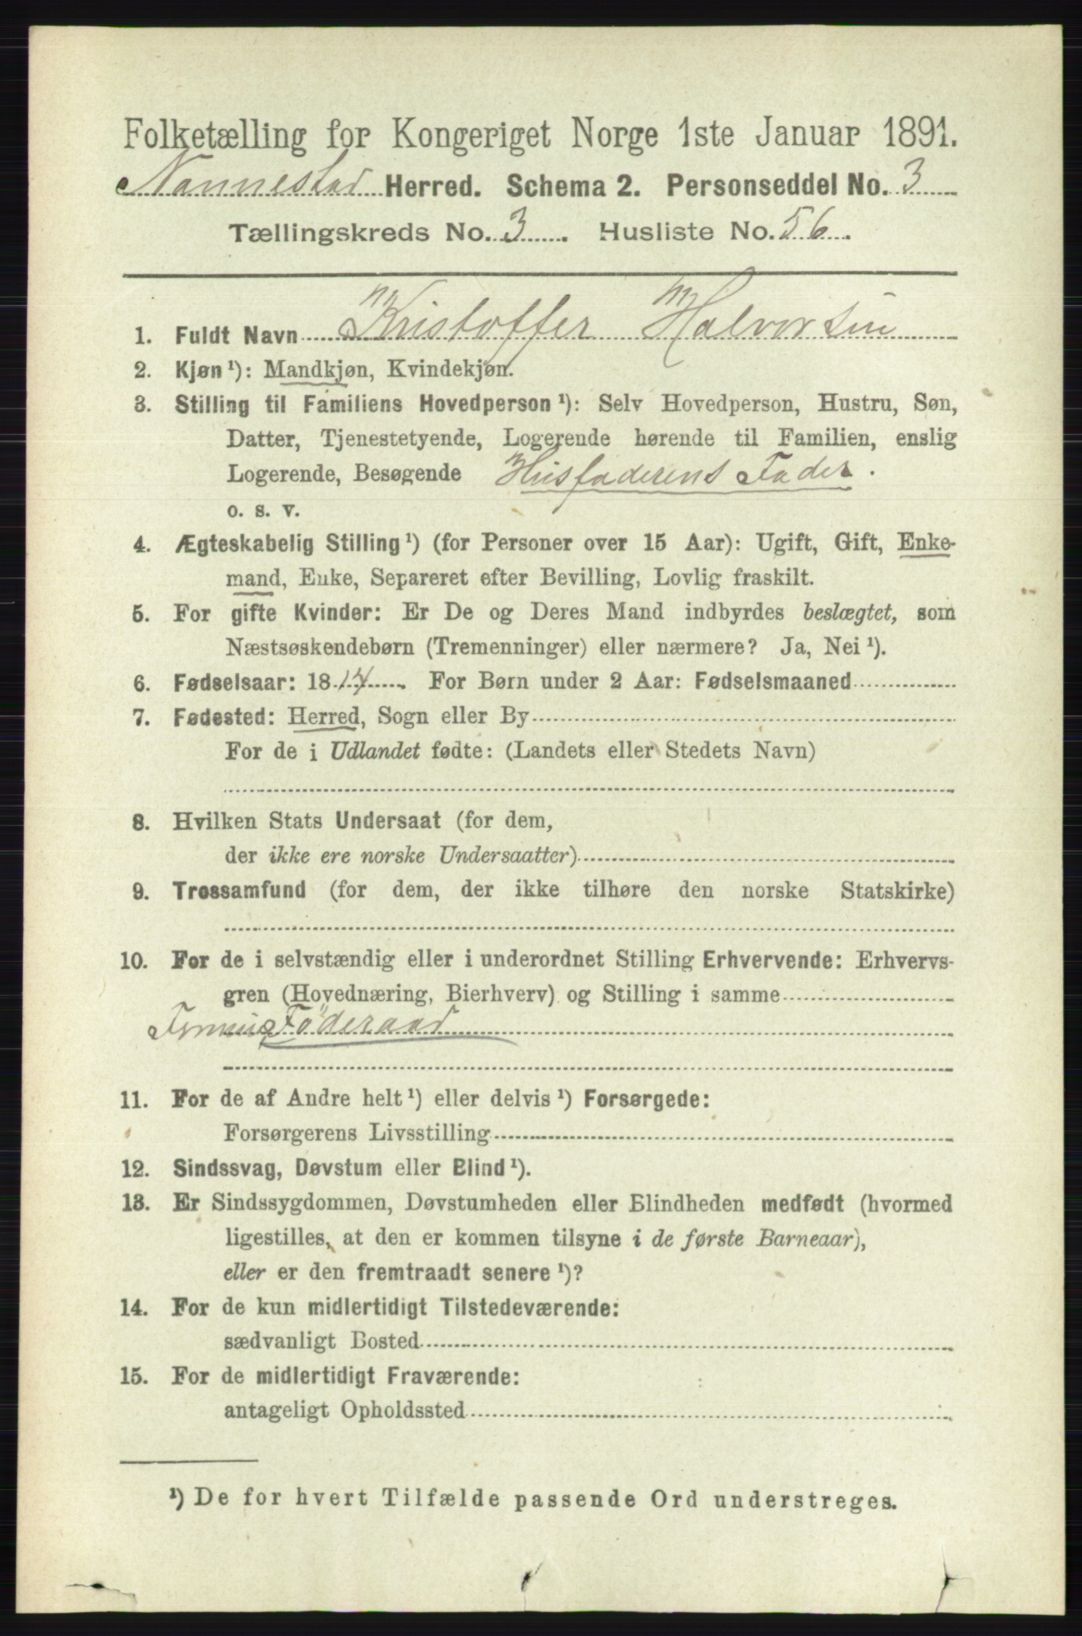 Folketælling for Kongeriget Norge 1ste Januar 1891.
Nannestad Herred. Schema 2. Personseddel No. 3
Tællingskreds No. 3. Husliste No. 56.
1. Fuldt Navn Kristoffer Halvorsen
2. Kjøn¹): Mandkjøn, Kvindekjøn.
3. Stilling til Familiens Hovedperson¹): Selv Hovedperson, Hustru, Søn,
Datter, Tjenestetyende, Logerende hørende til Familien, enslig
Logerende, Besøgende Husfaderens Fader.
o. s. v.
4. Ægteskabelig Stilling¹) (for Personer over 15 Aar): Ugift, Gift, Enke-
mand, Enke, Separeret efter Bevilling, Lovlig fraskilt.
5. For gifte Kvinder: Er De og Deres Mand indbyrdes beslægtet, som
Næstsøskendebørn (Tremenninger) eller nærmere? Ja, Nei¹).
6. Fødselsaar: 1814. For Børn under 2 Aar: Fødselsmaaned
7. Fødested: Herred, Sogn eller By
For de i Udlandet fødte: (Landets eller Stedets Navn)
8. Hvilken Stats Undersaat (for dem,
der ikke ere norske Undersaatter)
9. Trossamfund (for dem, der ikke tilhøre den norske Statskirke)
10. For de i selvstændig eller i underordnet Stilling Erhvervende: Erhvervs-
gren (Hovednæring, Bierhverv) og Stilling i samme
Föderaad
11. For de af Andre helt¹) eller delvis¹) Forsørgede:
Forsørgerens Livsstilling
12. Sindssvag, Døvstum eller Blind¹).
13. Er Sindssygdommen, Døvstumheden eller Blindheden medfødt (hvormed
ligestilles, at den er kommen tilsyne i de første Barneaar),
eller er den fremtraadt senere¹)?
14. For de kun midlertidigt Tilstedeværende:
sædvanligt Bosted
15. For de midlertidigt Fraværende:
antageligt Opholdssted
¹) De for hvert Tilfælde passende Ord understreges.